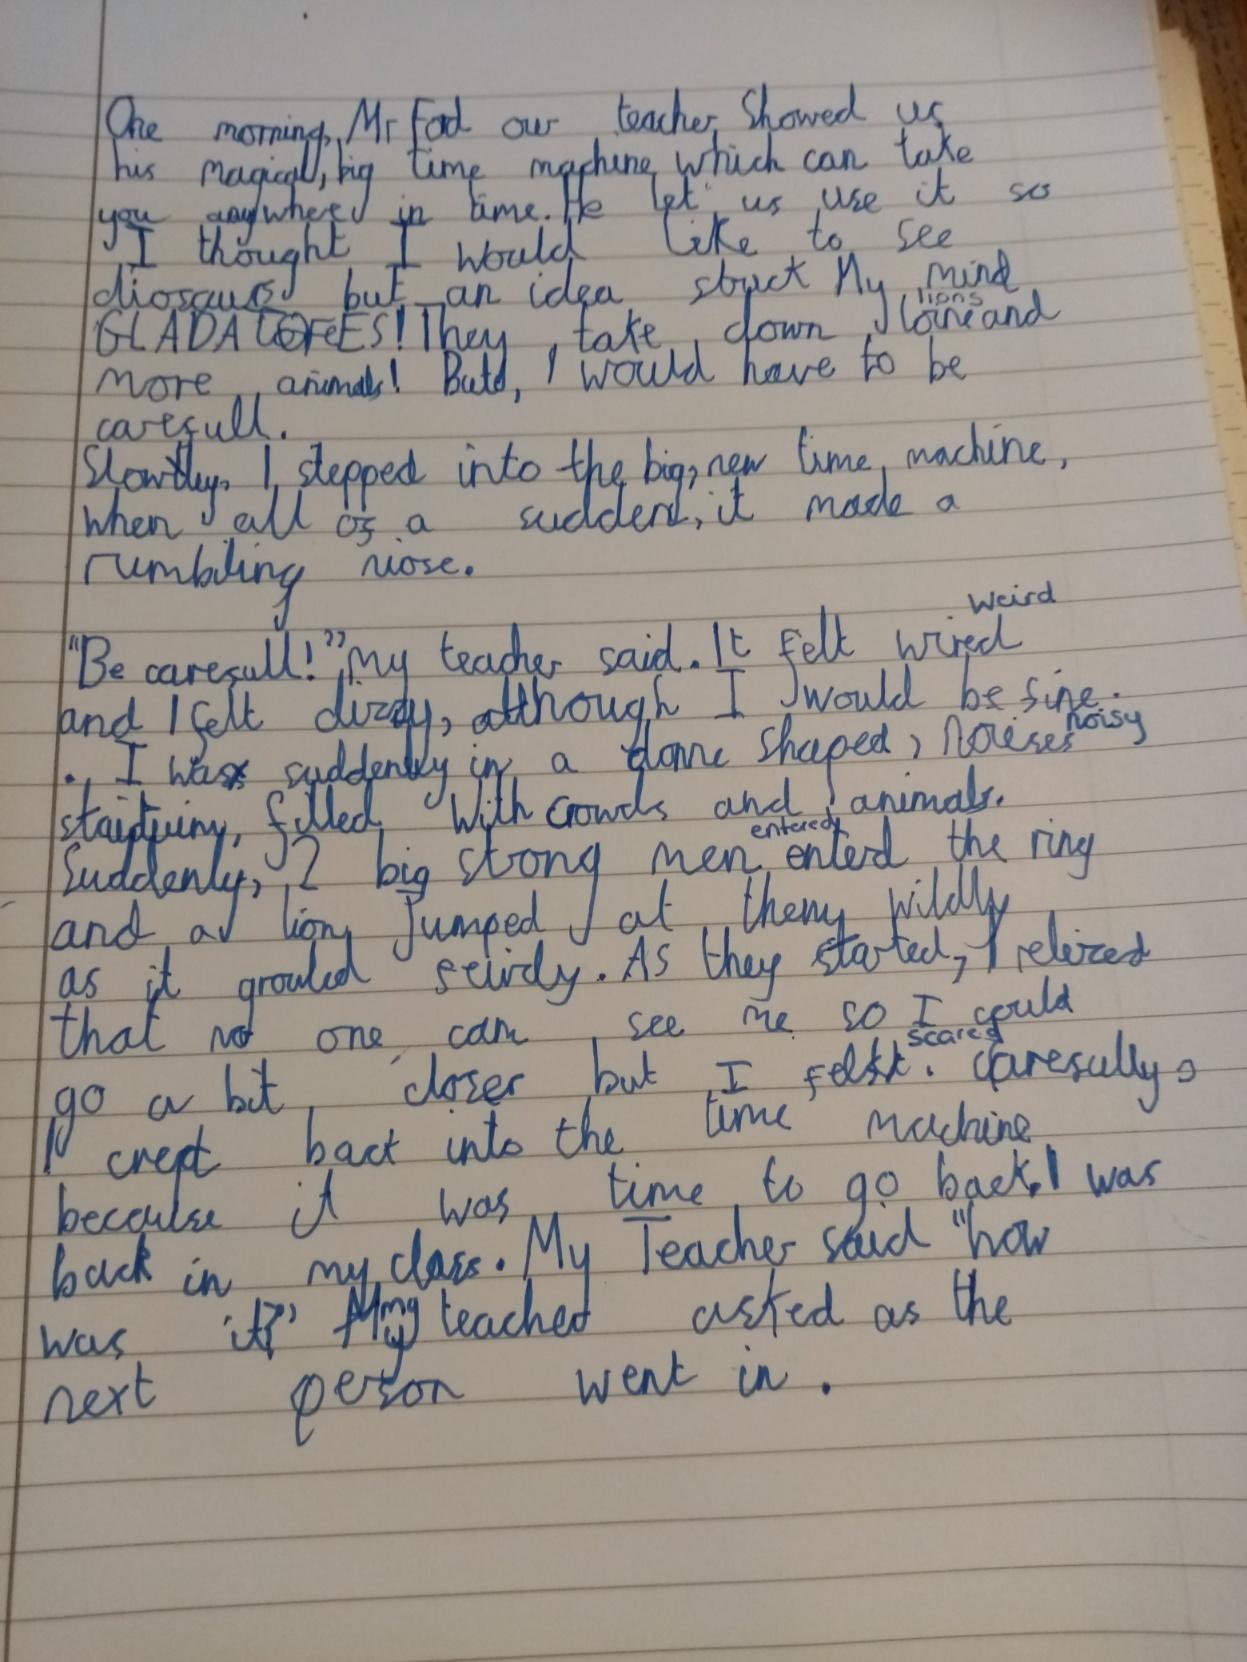 One morning, Mr Fod our teacher, Showed us
his magical, big time machine which can take
you anywhere in time. He let us use it so
I thought I would like to see
diosaurs but an idea struck My mind
They take down lions and
more animals! But, I would have to be
carefull.
Slowly, I stepped into the big, new time machine,
when all of a sudden, it made a
rumbling niose.
weird
"Be carefull!" My teacher said. It felt wired
and I felt dizzy, although I would be fine.
noisy
. I was suddenly in a dome shaped,
filled with crowds and animals.
entered
Suddenly, 2 big strong men enterd the ring
and a lion jumped at them wildly
as it grouled. As they started, I relized
that no one can see me so I could
scared
go a bit closer but I felt. Carefully,
I crept back into the time machine
because it was time to go back. I was
back in my class. My Teacher said "how
was it?" my teacher asked as the
next person went in.